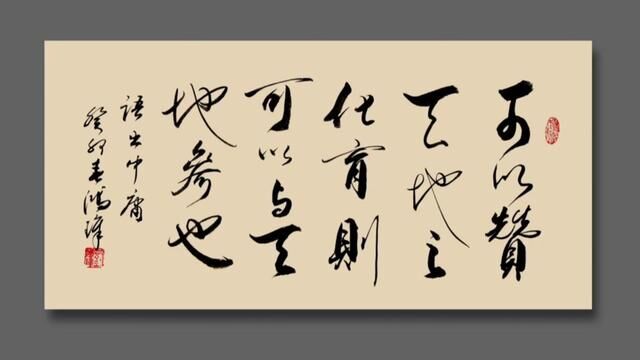 可以贊
天地之
化育則
可以与天
地參也
語出中庸
癸卯春